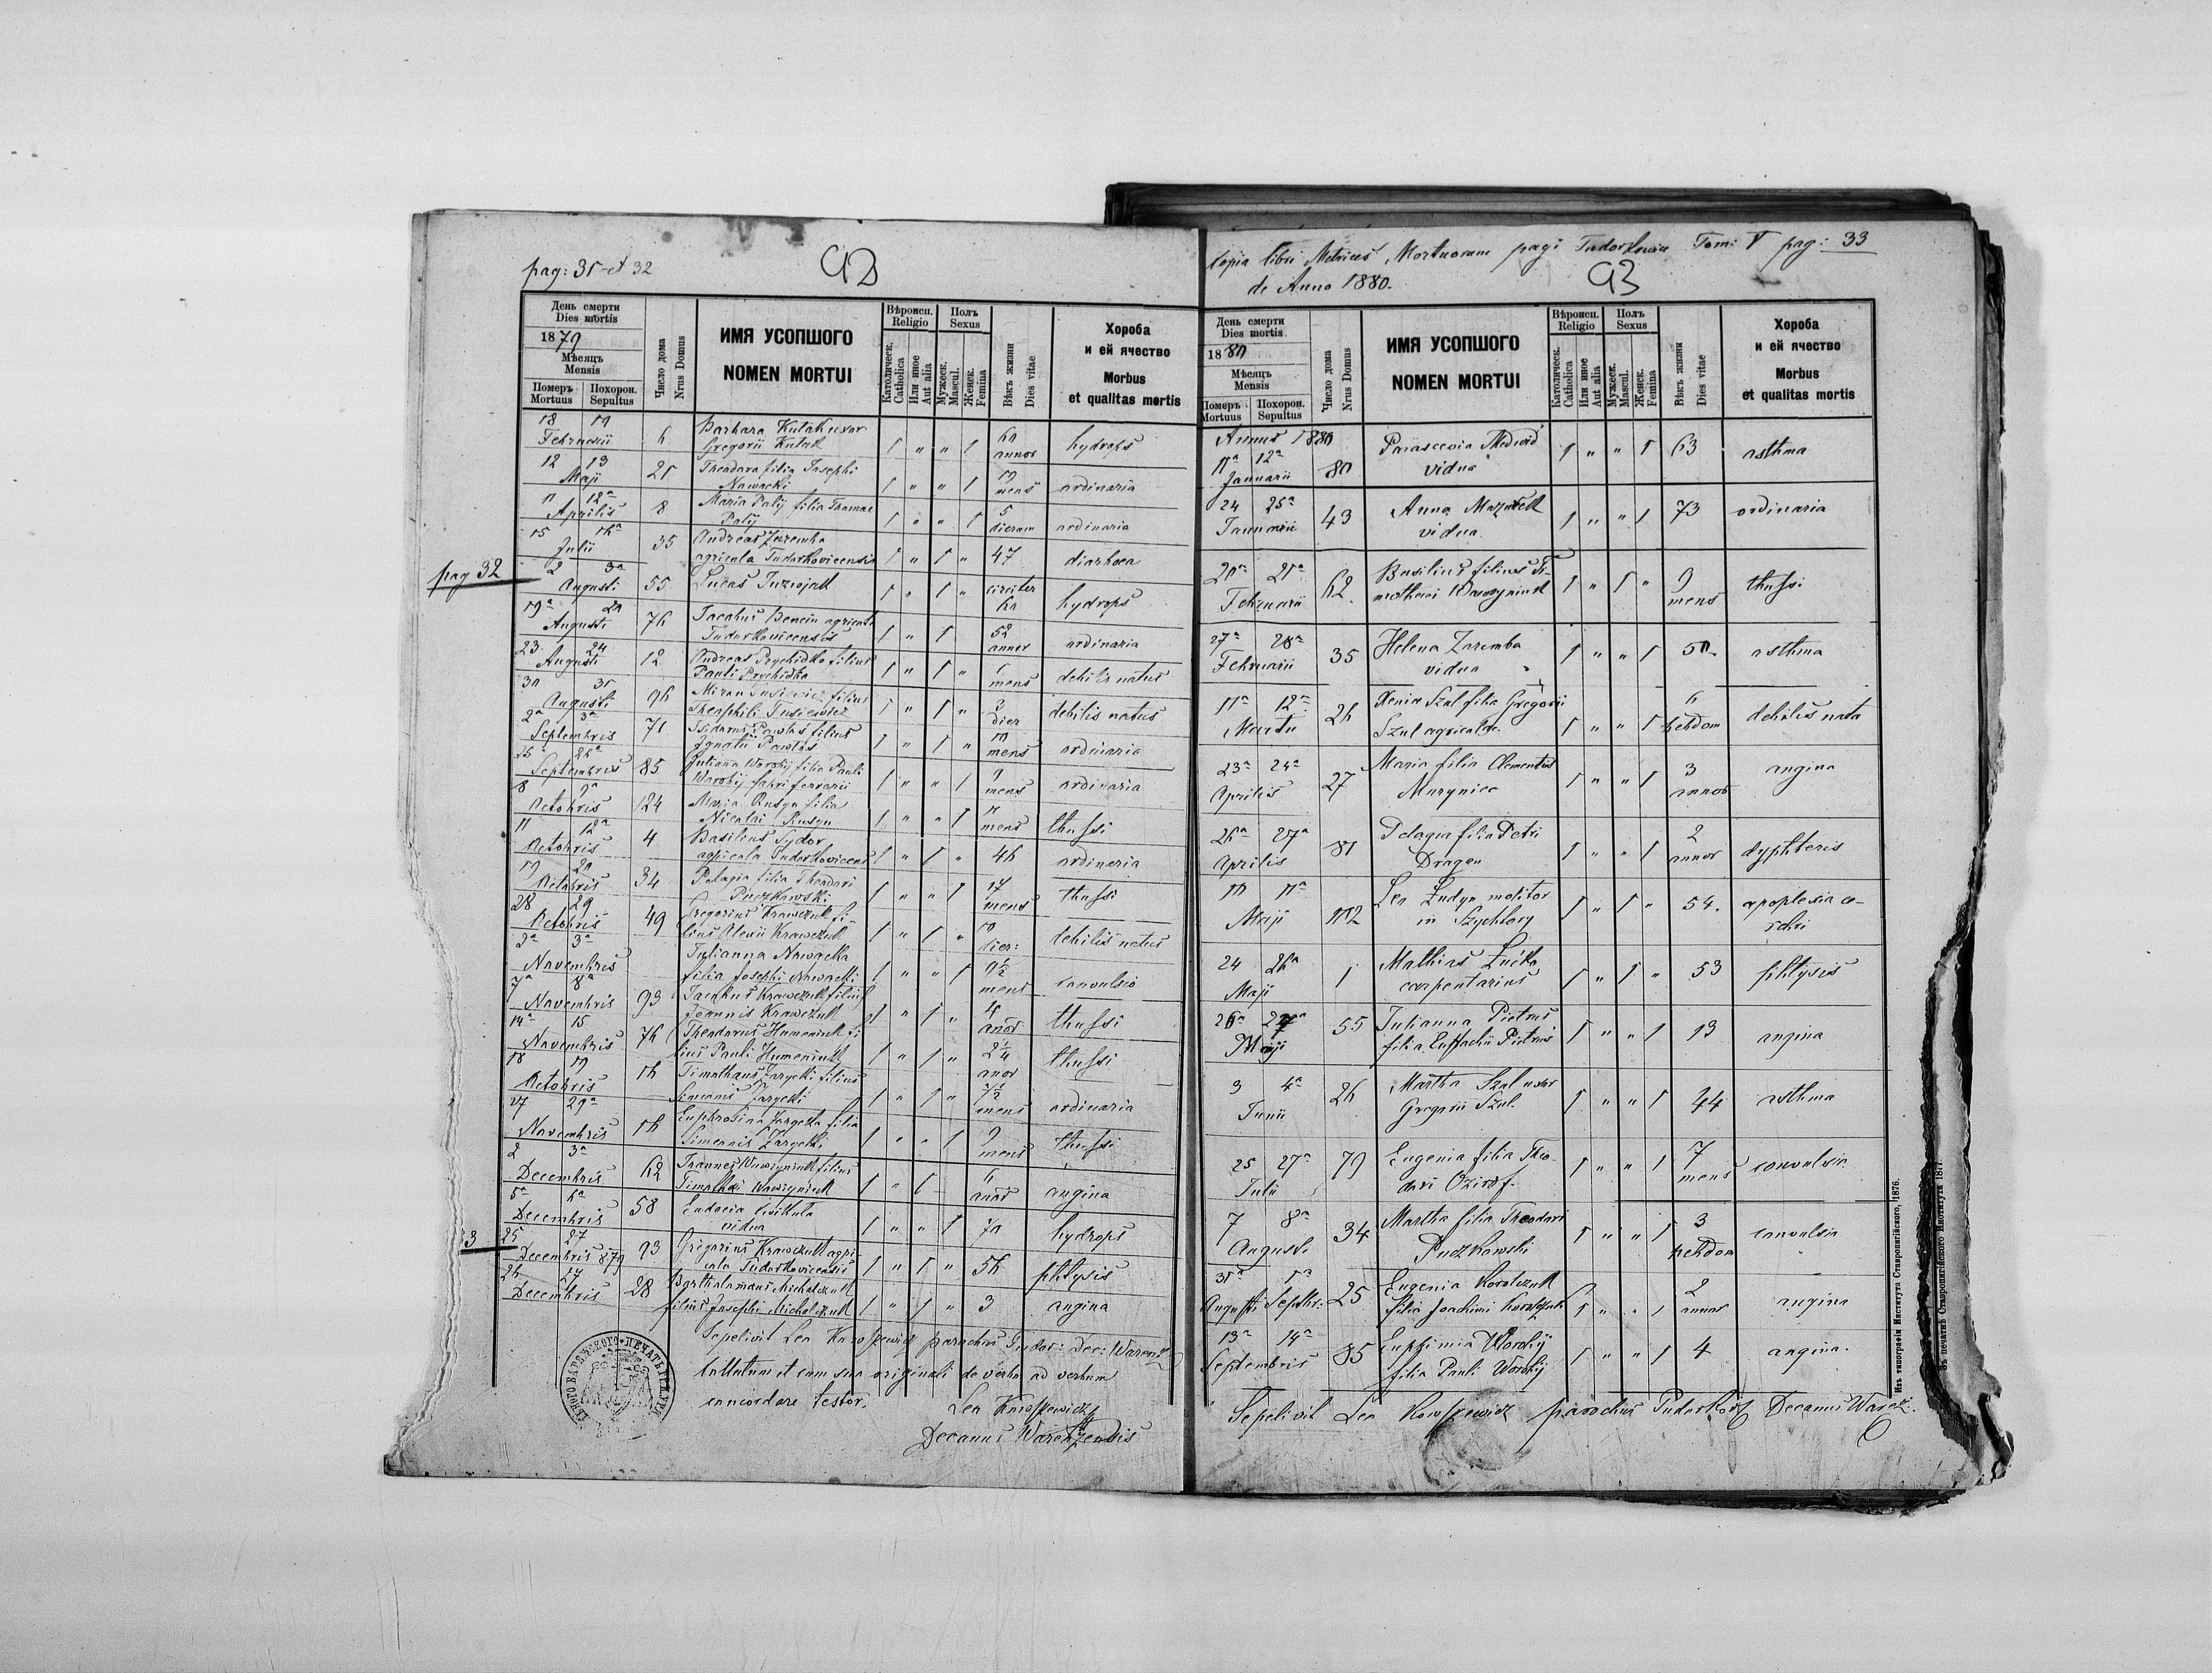 pag: 31 et 32
92
День смерти
Dies mortis
1879
Мѣсяцъ
Mensis
Померъ Mortuus
Похорон. Sepultus
Число дома
Nrus Domus
ИМЯ УСОПШОГО
NOMEN MORTUI
Вѣроисп.
Religio
Католическ.
Catholica
Или иное
Aut alia
Полъ
Sexus
Мужеск.
Mascul.
Женск.
Femina
Вѣкъ жизни
Dies vitae
Хороба
и ей ячество
Morbus
et qualitas mortis
18 19 Barbara Kutak uxor 60
Februarii 6 Gregorii Kutak 1 " " 1 annor hydrops
12 13 Theodora filia Josephi 10
Maji 21 Nawacki 1 " " 1 mens ordinaria
11 12a Maria Palij filia Thomae 5
Aprilis 8 Palij 1 " " 1 dierum ordinaria
15 16a Andreas Zaremba
Julii 35 agricola Tudorkovicensis 1 " 1 " 47 diarhoea
pag 32
2 3a circiter
Augusti 55 Lucas 1 " 1 " 60 hydrops
19a 20 Jacobus Bencin agricola 52
Augusti 76 Tudorkovicensis 1 " 1 annor ordinaria
23 24 Andreas Prychidko filius
Augusti 12 Pauli Prychidko 1 " 1 " mens debilis natus
30 31 Miron Tusiewicz filius 3
Augusti 96 Theophili Tusiewicz 1 " 1 " dier debilis natus
2a 3a Isidorus Pawlos filius 10
Septembris 71 Ignatii Pawlos 1 " 1 " mens ordinaria
25 26a Juliana Worobij filia Pauli 9
Septembris 85 Worobij fabri ferrarii 1 " " 1 mens ordinaria
8 9a Maria Rusyn filia
Octobris 124 Nicolai Rusyn 1 " " 1 mens thussi
11 12a Basilius Sydor
Octobris 4 agricola Tudorkovicens 1 " 1 " 46 ordinaria
19 20 Pelagia filia Theodori 17
Octobris 34 Puczkowski 1 " " 1 mens thussi
28 29 Gregorius Krawczuk fi- 10
Octobris 49 lius Alexii Krawczuk 1 " 1 " dier: debilis natus
2a 3a Julianna Nawacka
Novembris filia Josephi Nawacki 1 " " 1 mens convulsio
7a 8a Jacobus Krawczuk filius 4
Novembris 93 Joannis Krawczuk 1 " 1 " anor thussi
14a 15 Theodorus Humeniuk fi- 2¼
Novembris 76 lius Pauli Humeniuk 1 " 1 " anor thussi
18 19 Timotheus Zarycki filius
Octobris 16 Simeonis Zarycki 1 " 1 " mens ordinaria
27 29a Euphrosina Zarycka filia 9
Novembris 16 Simeonis Zarycki 1 " " 1 mens thussi
2 3a Joannes Wawryniuk filius 6
Decembris 62 Timothei Wawryniuk 1 " 1 anor angina
5a 6a Eudocia
Decembris 58 vidua 1 " " 1 70 hydrops
3
25 27 Gregorius Krawczuk agri-
Decembris 879 93 cola Tudorkovicensis 1 " 1 " 56 phtysis
26 27 Bartholomaus Michalczuk
Decembris 28 filius Josephi Michalczuk 1 " 1 " 3 angina
Sepelivit Leo Karoszewicz parochus Tudor: Dec: Warenz
Collatum et cum suo originali de verbo ad verbum
concordare testor.
Leo Karoszewicz
Decanus Warenzensis
Copia libri Metrices Mortuorum pagi Tudorkowice Tom: V pag: 33
de Anno 1880.
93
День смерти
Dies mortis.
1880
Мѣсяцъ
Mensis
Померъ Mortuus
Похорон. Sepultus
Число дома
Nrus Domus
ИМЯ УСОПШОГО
NOMEN MORTUI
Вѣроисп.
Religio
Католическ.
Catholica
Или иное
Aut alia
Полъ
Sexus
Мужеск.
Mascul.
Женск.
Femina
Вѣкъ жизни
Dies vitae
Хороба
и ей ячество
Morbus
et qualitas mortis
Annus 1880
11a 12a Parascevia Medwid 1 " " 1 63 asthma
Januarii 80 vidua
24 25a Anna Mazurek 73 ordinaria
Januarii 43 vidua 1 " " 1
20a 21a Basilius filius Ti- 9 thussi
Februarii 62 mothei Wawryniuk 1 " 1 " mens
27a 28a Helena Zaremba
Februarii 35 vidua 1 " " 1 50 asthma
11a 12a Xenia Szul filia Gregorii 6
Martii 26 Szul agricolae 1 " " 1 hebdom debilis nata
23a 24a Maria filia Clementis 3 angina
Aprilis 27 Murynice 1 " " 1 annor
26a 27a Pelagia filia Petri 2
Aprilis 81 Dragan 1 " " 1 annor dyphteris
10 11a Leo Zudyn molitor apoplexia ce-
Maji 102 in Szychtory 1 " 1 " 54. rebri
24 26a Mathias Zučka
Maji 1 carpentarius 1 " 1 " 53 phtysis
26a 27a Julianna Pietrus
Maji 55 filia Eustachii Pietrus 1 " " 1 13 angina
3 4a Martha Szul uxor
Junii 26 Gregorii Szul. 1 " " 1 44 asthma
25 27a Eugenia filia Theo- 7
Julii 79 dori Ozirof. 1 " " 1 mens convulsio
7 8a Martha filia Theodori 3
Augusti 34 Puczkowski 1 " " 1 hebdom convulsio
31a 1a Eugenia Korolczuk 2
Augusti Septbr: 25 filia Joachimi Korolczuk 1 " " 1 annor angina
13a 14a Euphimia Worobij
Septembris 85 filia Pauli Worobij 1 " " 1 4 angina.
Sepelivit Leo Karoszewicz parochus Tudorkov Decanus Warez.
Изъ типографіи Института Ставропигійского, 1876.
Зъ печатнѣ Ставропигійского Института 1877.